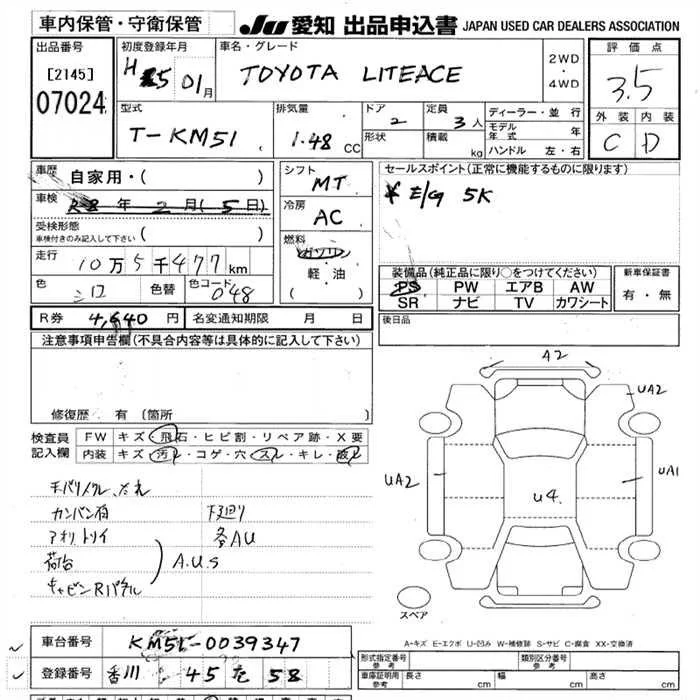 車内保管・守衛保管
JU 愛知 出品申込書 JAPAN USED CAR DEALERS ASSOCIATION
出品番号
[2145]
07024
初度登録年月
H 5 01月
車名・グレード
TOYOTA LITEACE
2WD
・
4WD
評価点
3.5
外装 内装
C D
型式
T-KM51
排気量
1.48 CC
ドア
2
形状
定員
3人
積載
kg
ディーラー・並行
モデル年式 年
ハンドル 左・右
車歴
自家用・( )
車検
年 2月(5日)
受検形態
車検付きのみ記入して下さい ( )
走行
10万5千477km
色
シロ
色替
色コード
048
シフト
MT
冷房
AC
燃料
ガソリン
軽・油
( )
セールスポイント(正常に機能するものに限ります)
E/G 5K
装備品(純正品に限り○をつけてください)
PS PW エアB AW
SR ナビ TV カワシート
新車保証書
有・無
R券 4,640円 名変通知期限 月 日
後日品
注意事項申告欄(不具合内容等は具体的に記入して下さい)
修復歴 有 〔箇所 〕
検査員
記入欄
FW キズ・飛石・ヒビ割・リペア跡・X要
内装 キズ・汚れ・コゲ・穴・スレ・キレ・破れ
カンバン有
下廻り
アオリ トリイ
各AU
荷台
A.U.S
キャビンRパネル
A2
UA2
UA2
UA1
U4.
スペア
A-キズ E-エクボ U-凹み W-補修跡 S-サビ C-腐食 XX-交換済
車台番号 KM51-0039347
登録番号 香川 45 58
形式指定番号
参考
類別区分番号
参考
車庫証明用
参考
長さ cm 幅 cm 高さ cm